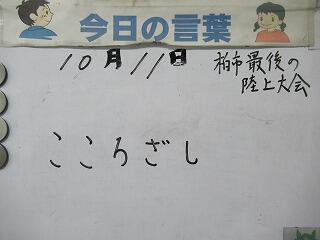 今日の言葉
10月11日
柏市最後の
陸上大会
こころざし